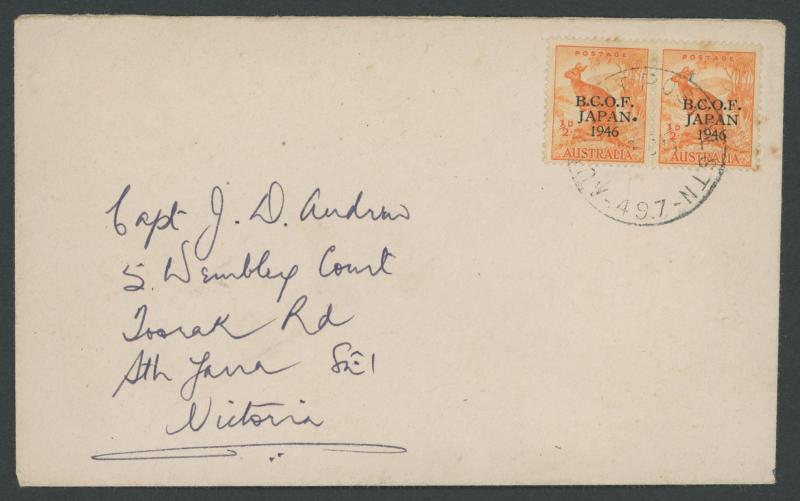 POSTAGE
B.C.O.F.
JAPAN.
1946
½D
AUSTRALIA
POSTAGE
B.C.O.F.
JAPAN
1946
½D
AUSTRALIA
497
Capt J. D. Andrew
5 Wembley Court
Toorak Rd
Sth Yarra SE1
Victoria